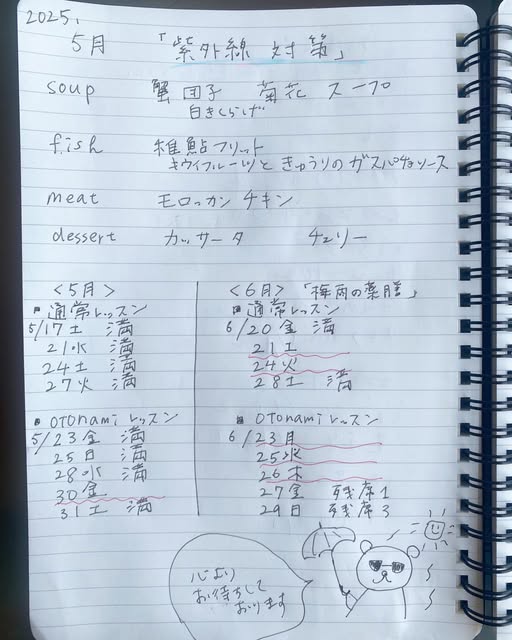 2025,
5月 「紫外線 対策」
soup 蟹団子 菊花 スープ
白きくらげ
fish 稚鮎フリット
キウイフルーツときゅうりのガスパチョソース
meat モロッカン チキン
dessert カッサータ チェリー
<5月>
通常レッスン
5/17土 満
21水 満
24土 満
27火 満
OTONamiレッスン
5/23金 満
25日 満
28水 満
30金
31土 満
<6月> 「梅雨の薬膳」
通常レッスン
6/20金 満
21土
24火
28土 満
OTONamiレッスン
6/23月
25水
26木
27金 残席1
29日 残席3
心より
お待ちして
おります